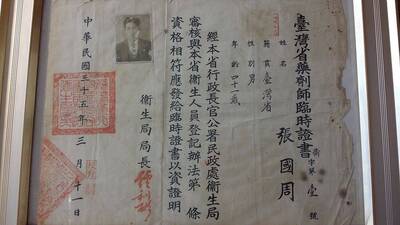 臺灣省藥劑師臨時證書
字第壹號
姓名 張國周
籍貫臺灣省
性別男
年齡四十一歲
經本省行政長官公署民政處衛生局
審核與本省衛生人員登記辦法第 條
資格相符應發給臨時證書以資證明
衛生局局長 經利彬
中華民國三十五年三月十一日